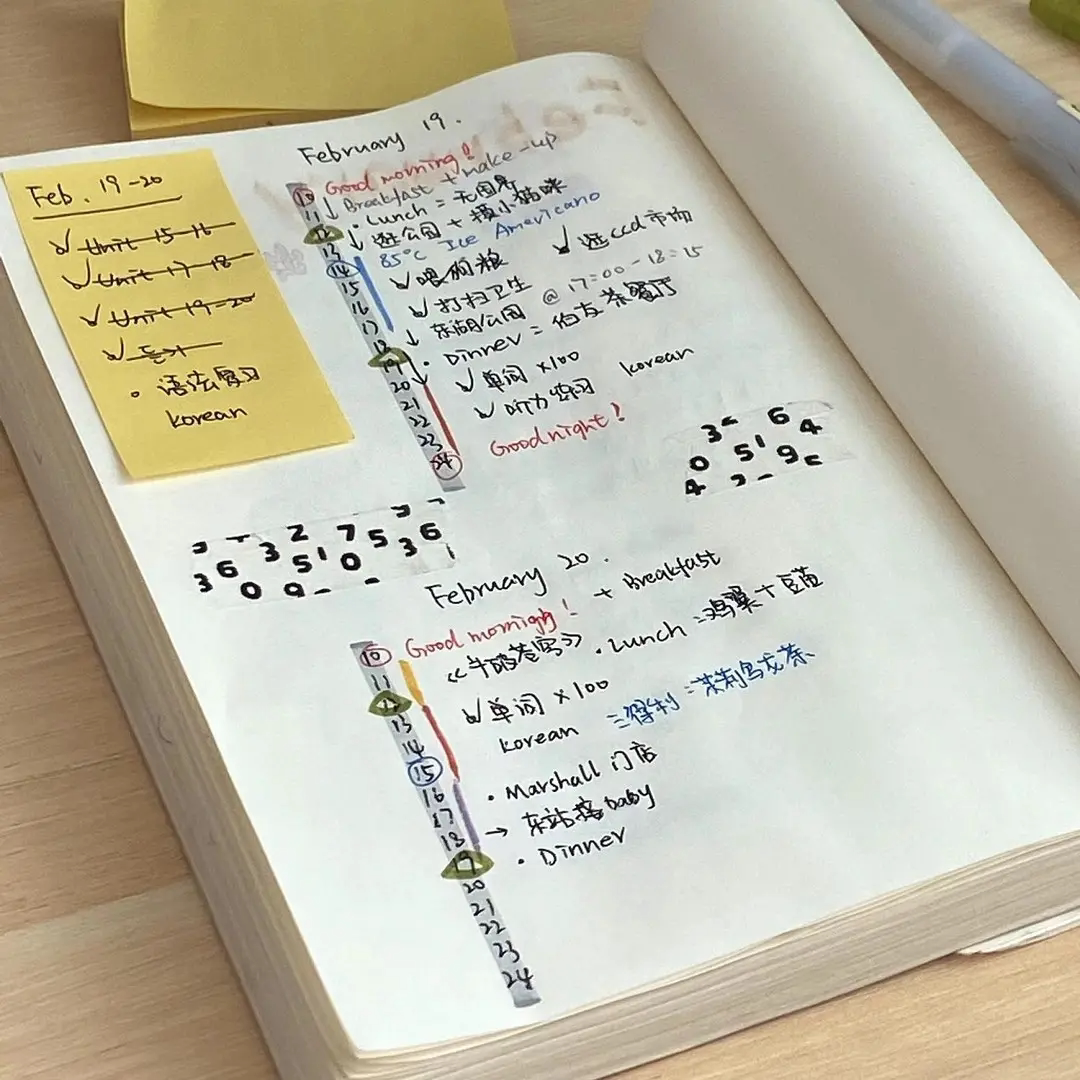 Feb. 19-20
Unit 15-16
Unit 17-18
Unit 19-20
듣기
语法复习
korean
February 19.
Good morning!
Breakfast + make-up
Lunch =
逛公园 + 摸小猫咪
85°C Ice Americano
喂狗粮
逛ccd市场
打扫卫生
东湖公园 @ 17:00-18:15
Dinner = 茶餐厅
单词 ×100
听力练习 korean
Good night!
10
11
12
13
14
15
16
17
18
19
20
21
22
23
24
3 6
0 5 1 9 4
4
2 7
3 6 3 5 1 0 5 3 6
0 9
February 20.
Good mornigh! + Breakfast
Lunch = 鸡翼+豆苗
单词 ×100
korean
=得利=茉莉乌龙茶
Marshall 门店
→ 东站接baby
Dinner
10
11
12
13
14
15
16
17
18
19
20
21
22
23
24